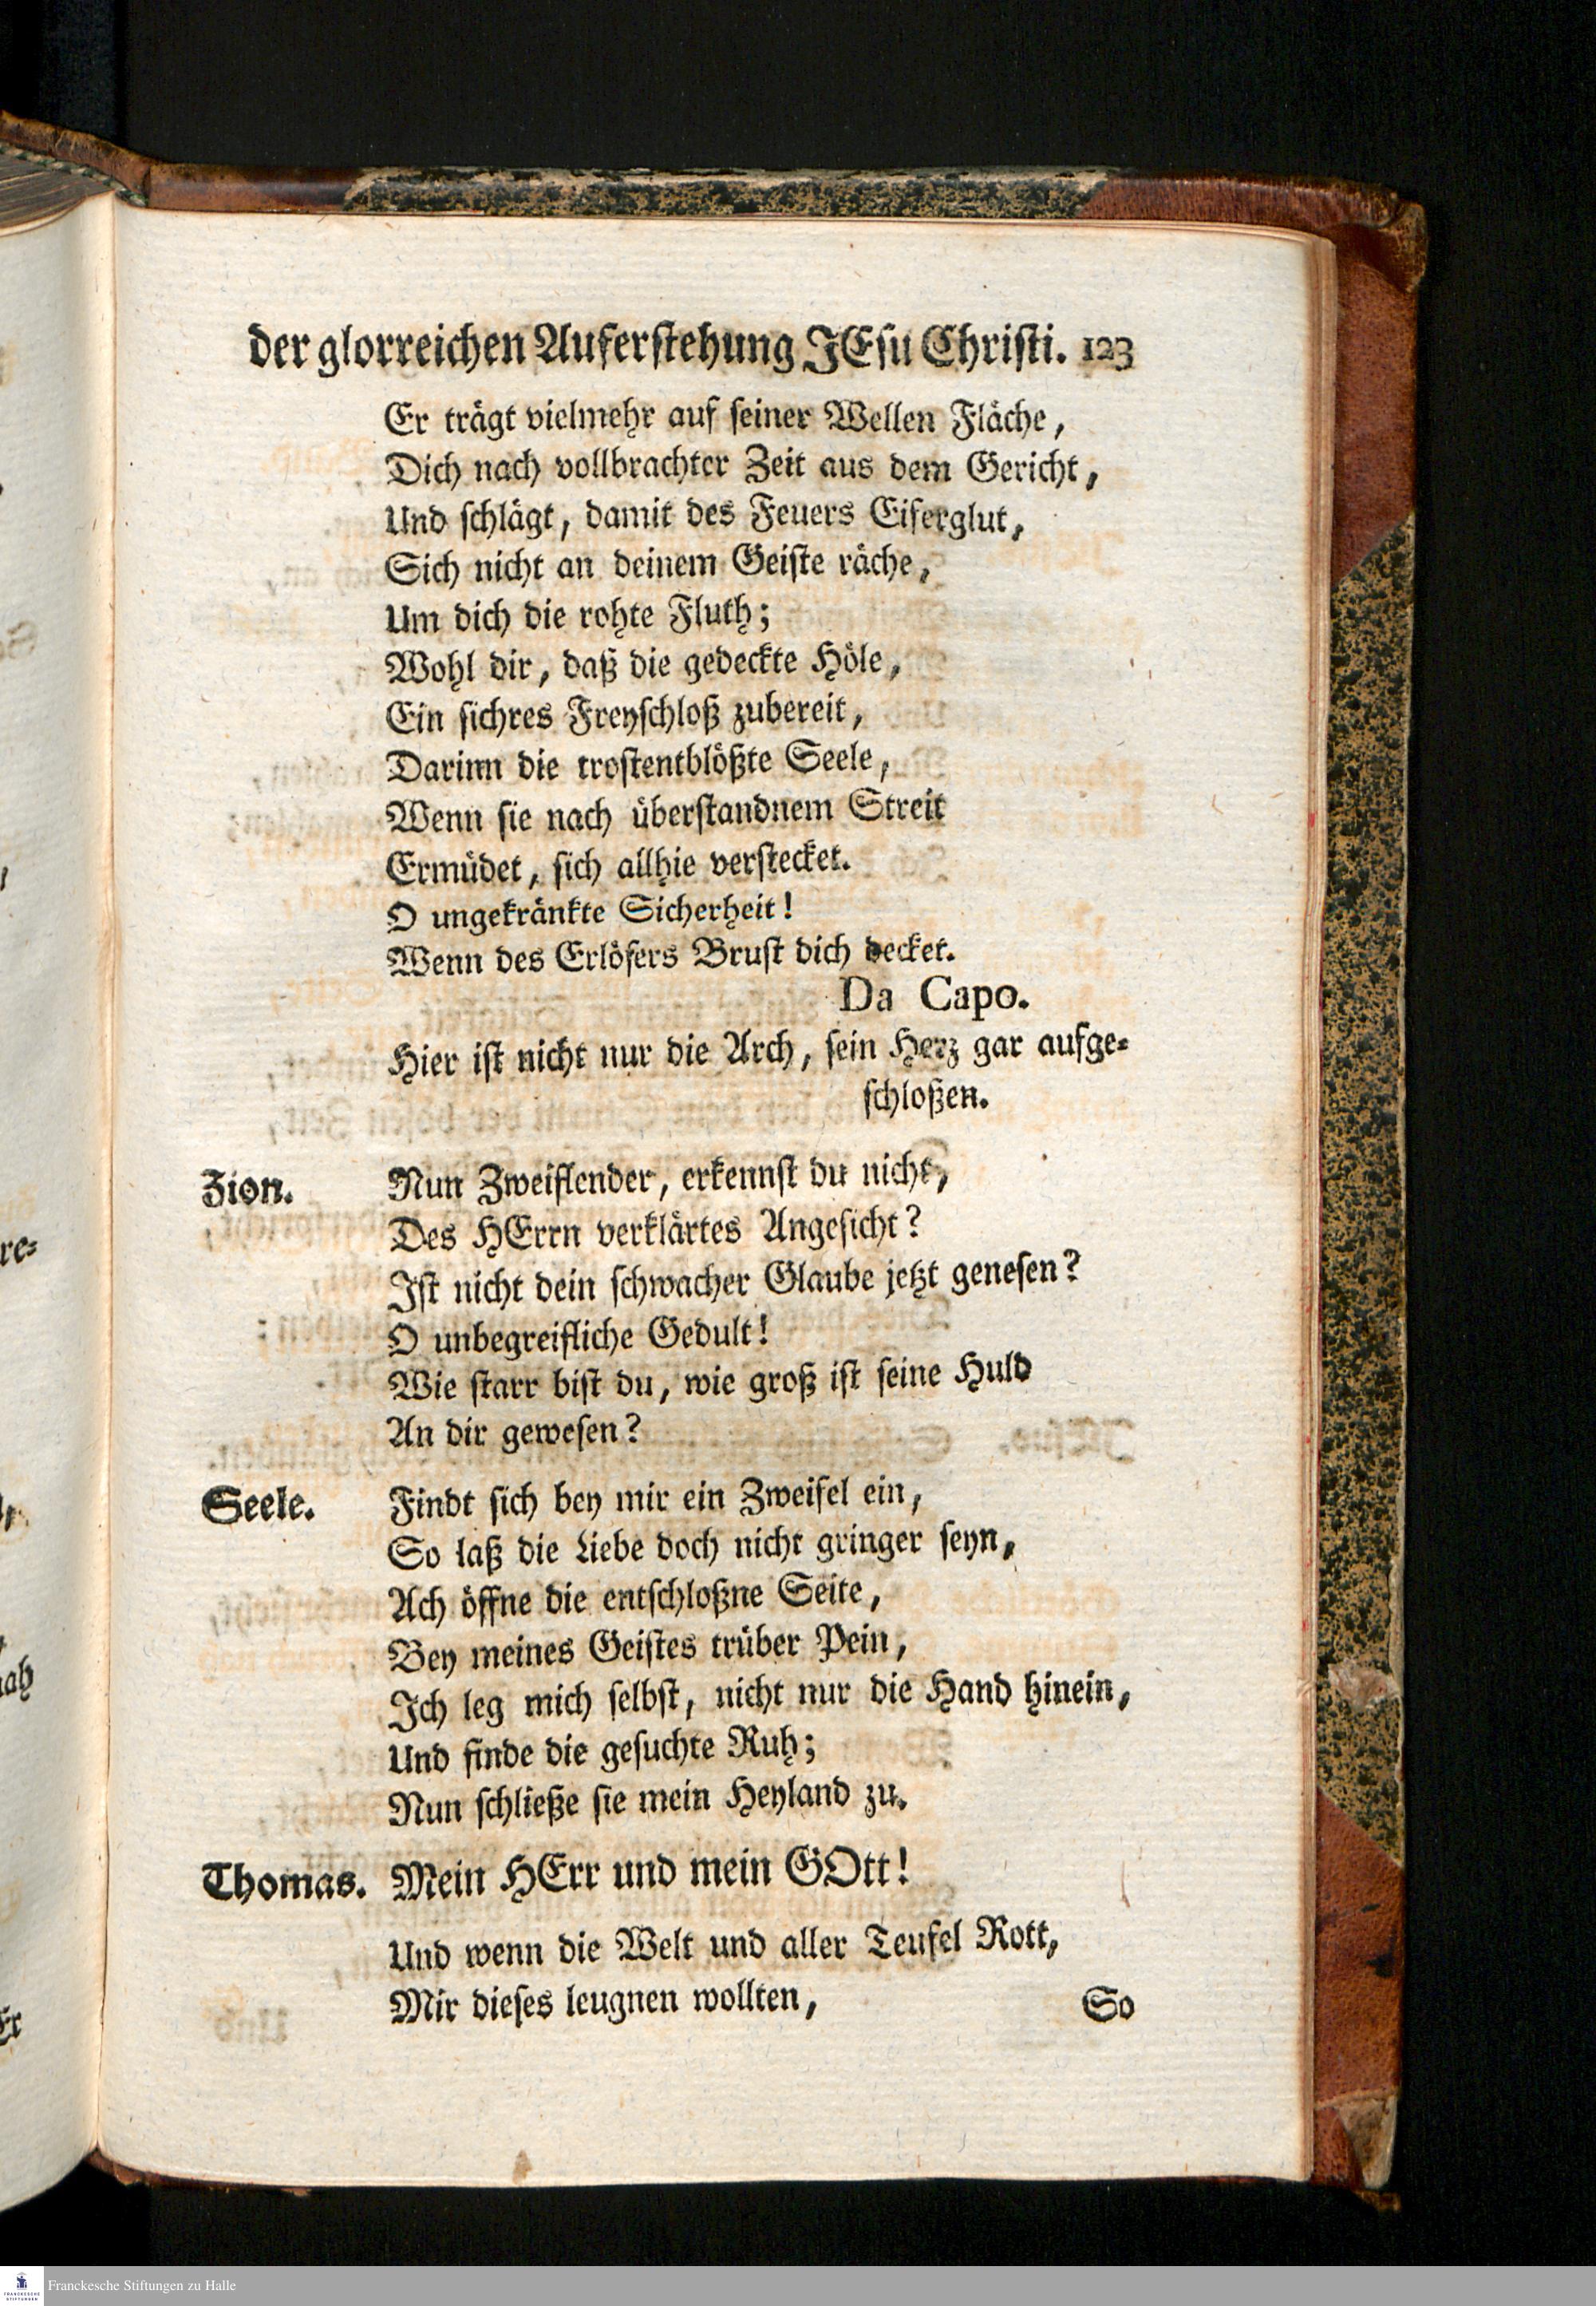 der glorreichen Auferstehung JEsu Christi. 123
Er trägt vielmehr auf seiner Wellen Fläche,
Dich nach vollbrachter Zeit aus dem Gericht,
Und schlägt, damit des Feuers Eiferglut,
Sich nicht an deinem Geiste räche,
Um dich die rohte Fluth;
Wohl dir, daß die gedeckte Höle,
Ein sichres Freyschloß zubereit,
Darinn die trostentblößte Seele,
Wenn sie nach überstandnem Streit
Ermüdet, sich allhie verstecket.
O ungekränkte Sicherheit!
Wenn des Erlösers Brust dich decket.
Da Capo.
Hier ist nicht nur die Arch, sein Herz gar aufge-
schloßen.
Zion. Nun Zweiflender, erkennst du nicht,
Des HErrn verklärtes Angesicht?
Ist nicht dein schwacher Glaube jetzt genesen?
O unbegreifliche Gedult!
Wie starr bist du, wie groß ist seine Huld
An dir gewesen?
Seele. Findt sich bey mir ein Zweifel ein,
So laß die Liebe doch nicht gringer seyn,
Ach öffne die entschloßne Seite,
Bey meines Geistes trüber Pein,
Ich leg mich selbst, nicht nur die Hand hinein,
Und finde die gesuchte Ruh;
Nun schließe sie mein Heyland zu.
Thomas. Mein HErr und mein GOtt!
Und wenn die Welt und aller Teufel Rott,
Mir dieses leugnen wollten,
So
Franckesche Stiftungen zu Halle